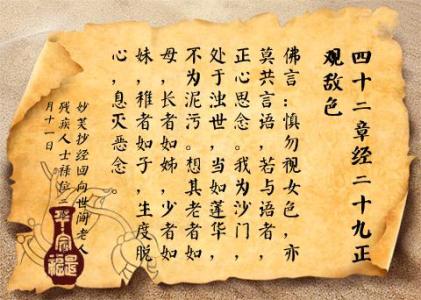 四十二章经二十九正
观敌色
佛言：慎勿视女色，亦
莫共言语，若与语者，
正心思念。我为沙门，
处于浊世，当如莲华，
不为泥污。想其老者如
母，长者如姊，少者如
妹，稚者如子，生度脱
心，息灭恶念。
妙芙抄经回向世间老人
残疾人士禄二
月十一日